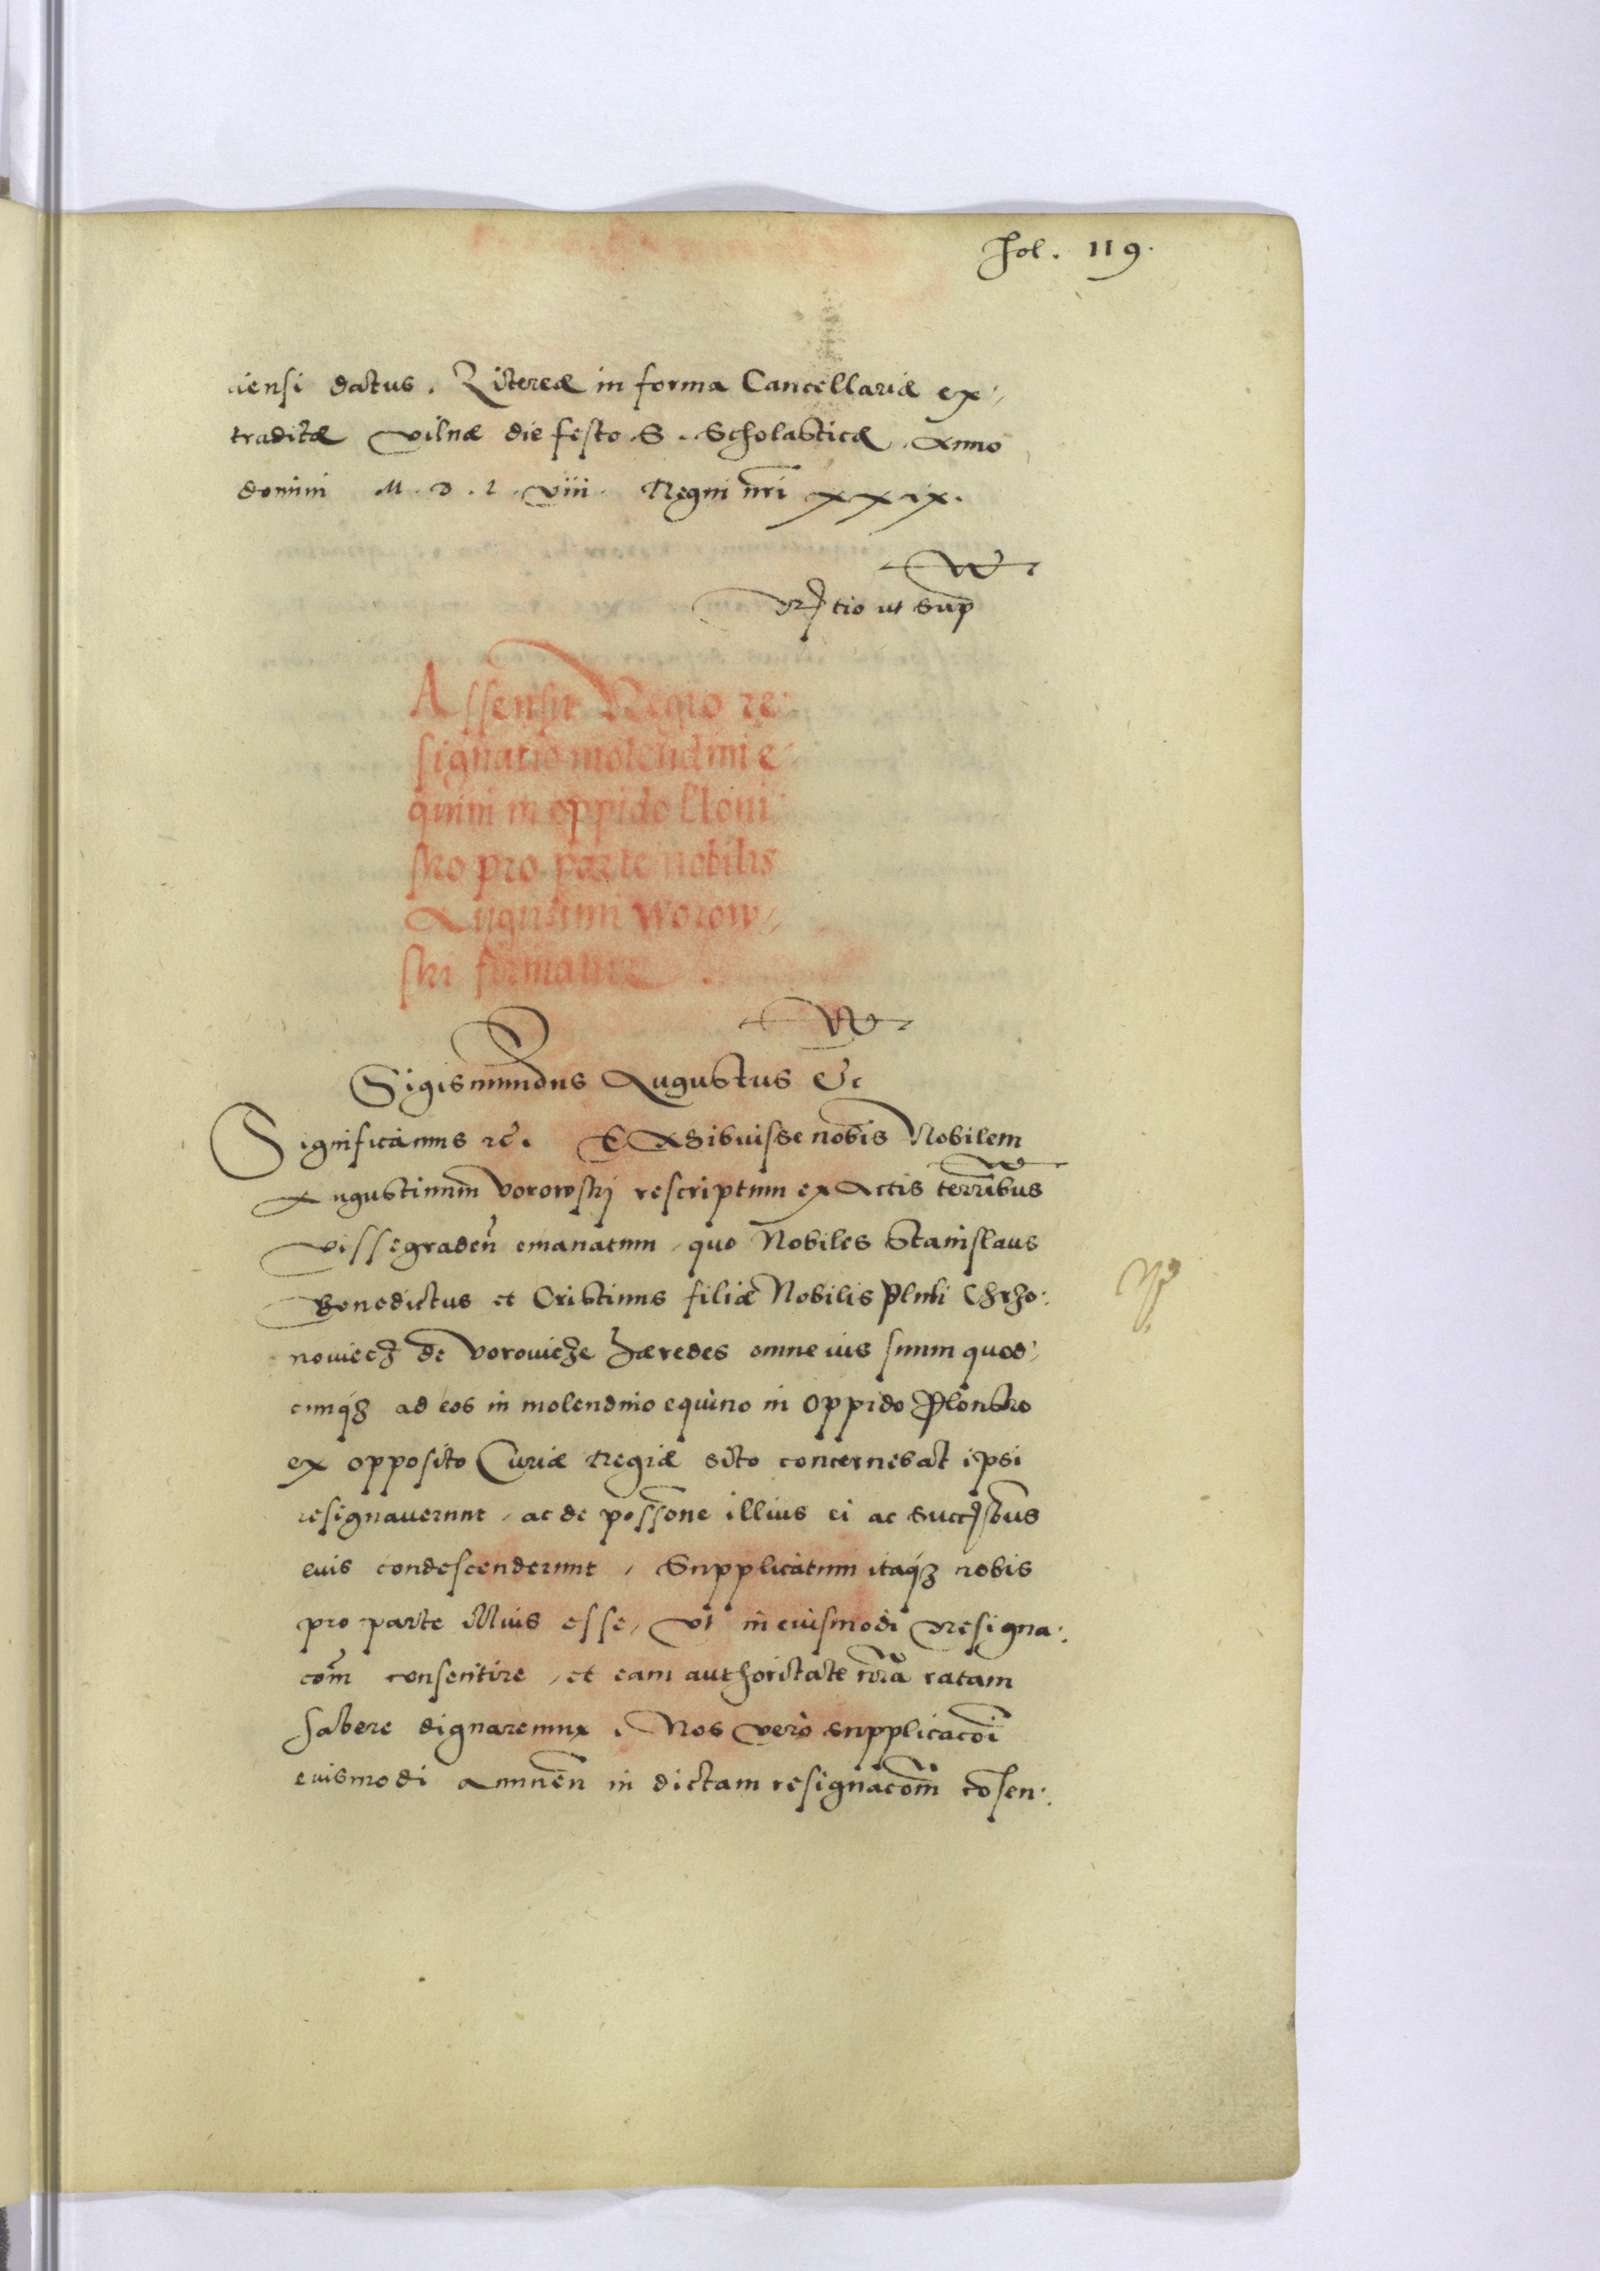 Fol. 119.
ciensi datus. Litereæ in forma Cancellariæ ex,
traditæ Vilnæ die festo S. Scholasticæ Anno
domini M.D.L.viii. Regni nrī xxix.
Rtio ut sup
Assensit Regio re:
signatio molendini e,
quini in oppido Ploni
sko pro parte nobilis
Augustini Worow,
ski formatur
Sigismundus Augustus &c
Significamus rc. Exhibuisse nobis Nobilem
Augustinum Vorowskj rescriptum ex Actis terrībus
Vissegradeñ emanatum, quo Nobiles Stanislaus
Benedictus et Cristinus filiæ Nobilis
nowiecz de Vorowicze hæredes omne ius suum quod,
cunqȝ ad eos in molendino equino in Oppido Plonsko
ex opposito Curiæ Regiæ sito concernebat ipsi
resignaverunt, ac de possone illius ei ac succsbus
euis condescenderunt, Supplicatum itaqȝ nobis
pro parte illius esse, Vt in euismodi resigna:
com̄ consentire, et eam authoritate nr̄ā ratam
habere dignaremur. Nos vero supplicacōi
euismodi annueñ in dictam resignacom̄ cōsen: